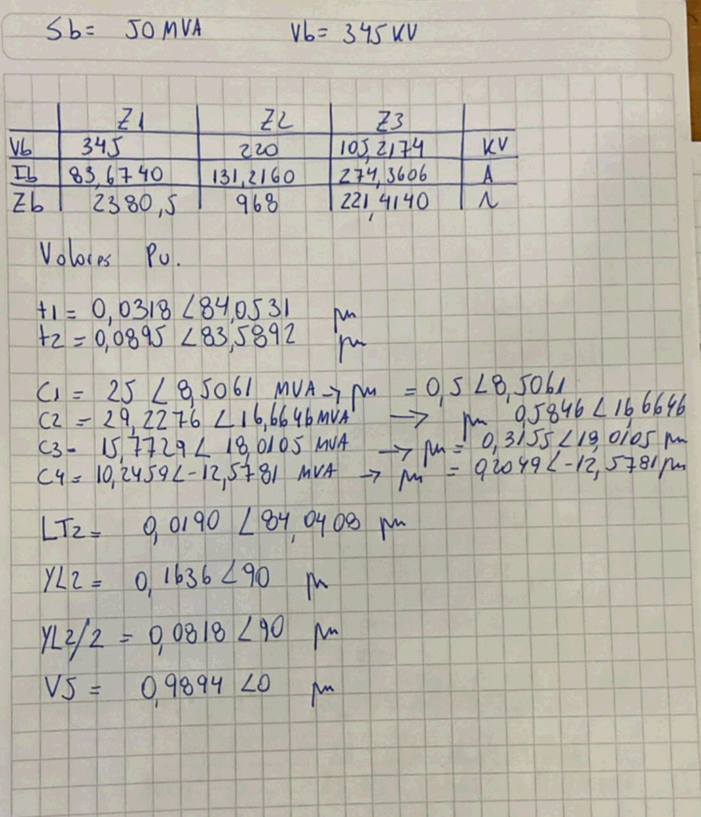 Sb= 50 MVA Vb= 345 KV
Z1 Z2 Z3
Vb 345 220 105,2174 KV
Ib 83,6740 131,2160 274,3606 A
Zb 2380,5 968 221,4140 Ω
Valores Pu.
t1= 0,0318 ∠84,0531 pu
t2= 0,0895 ∠83,5892 pu
C1 = 25 ∠8,5061 MVA → pu = 0,5 ∠8,5061
C2 = 29,2276 ∠16,6646 MVA → pu 0,5846 ∠16,6646
C3= 15,7729 ∠ 18,0105 MVA → pu = 0,3155 ∠18,0105 pu
C4= 10,2459 ∠-12,5781 MVA → pu = 0,2049 ∠-12,5781 pu
LT2= 0,0190 ∠84,0408 pu
YL2 = 0,1636 ∠90 pu
YL2/2 = 0,0818 ∠90 pu
V5 = 0,9894 ∠0 pu